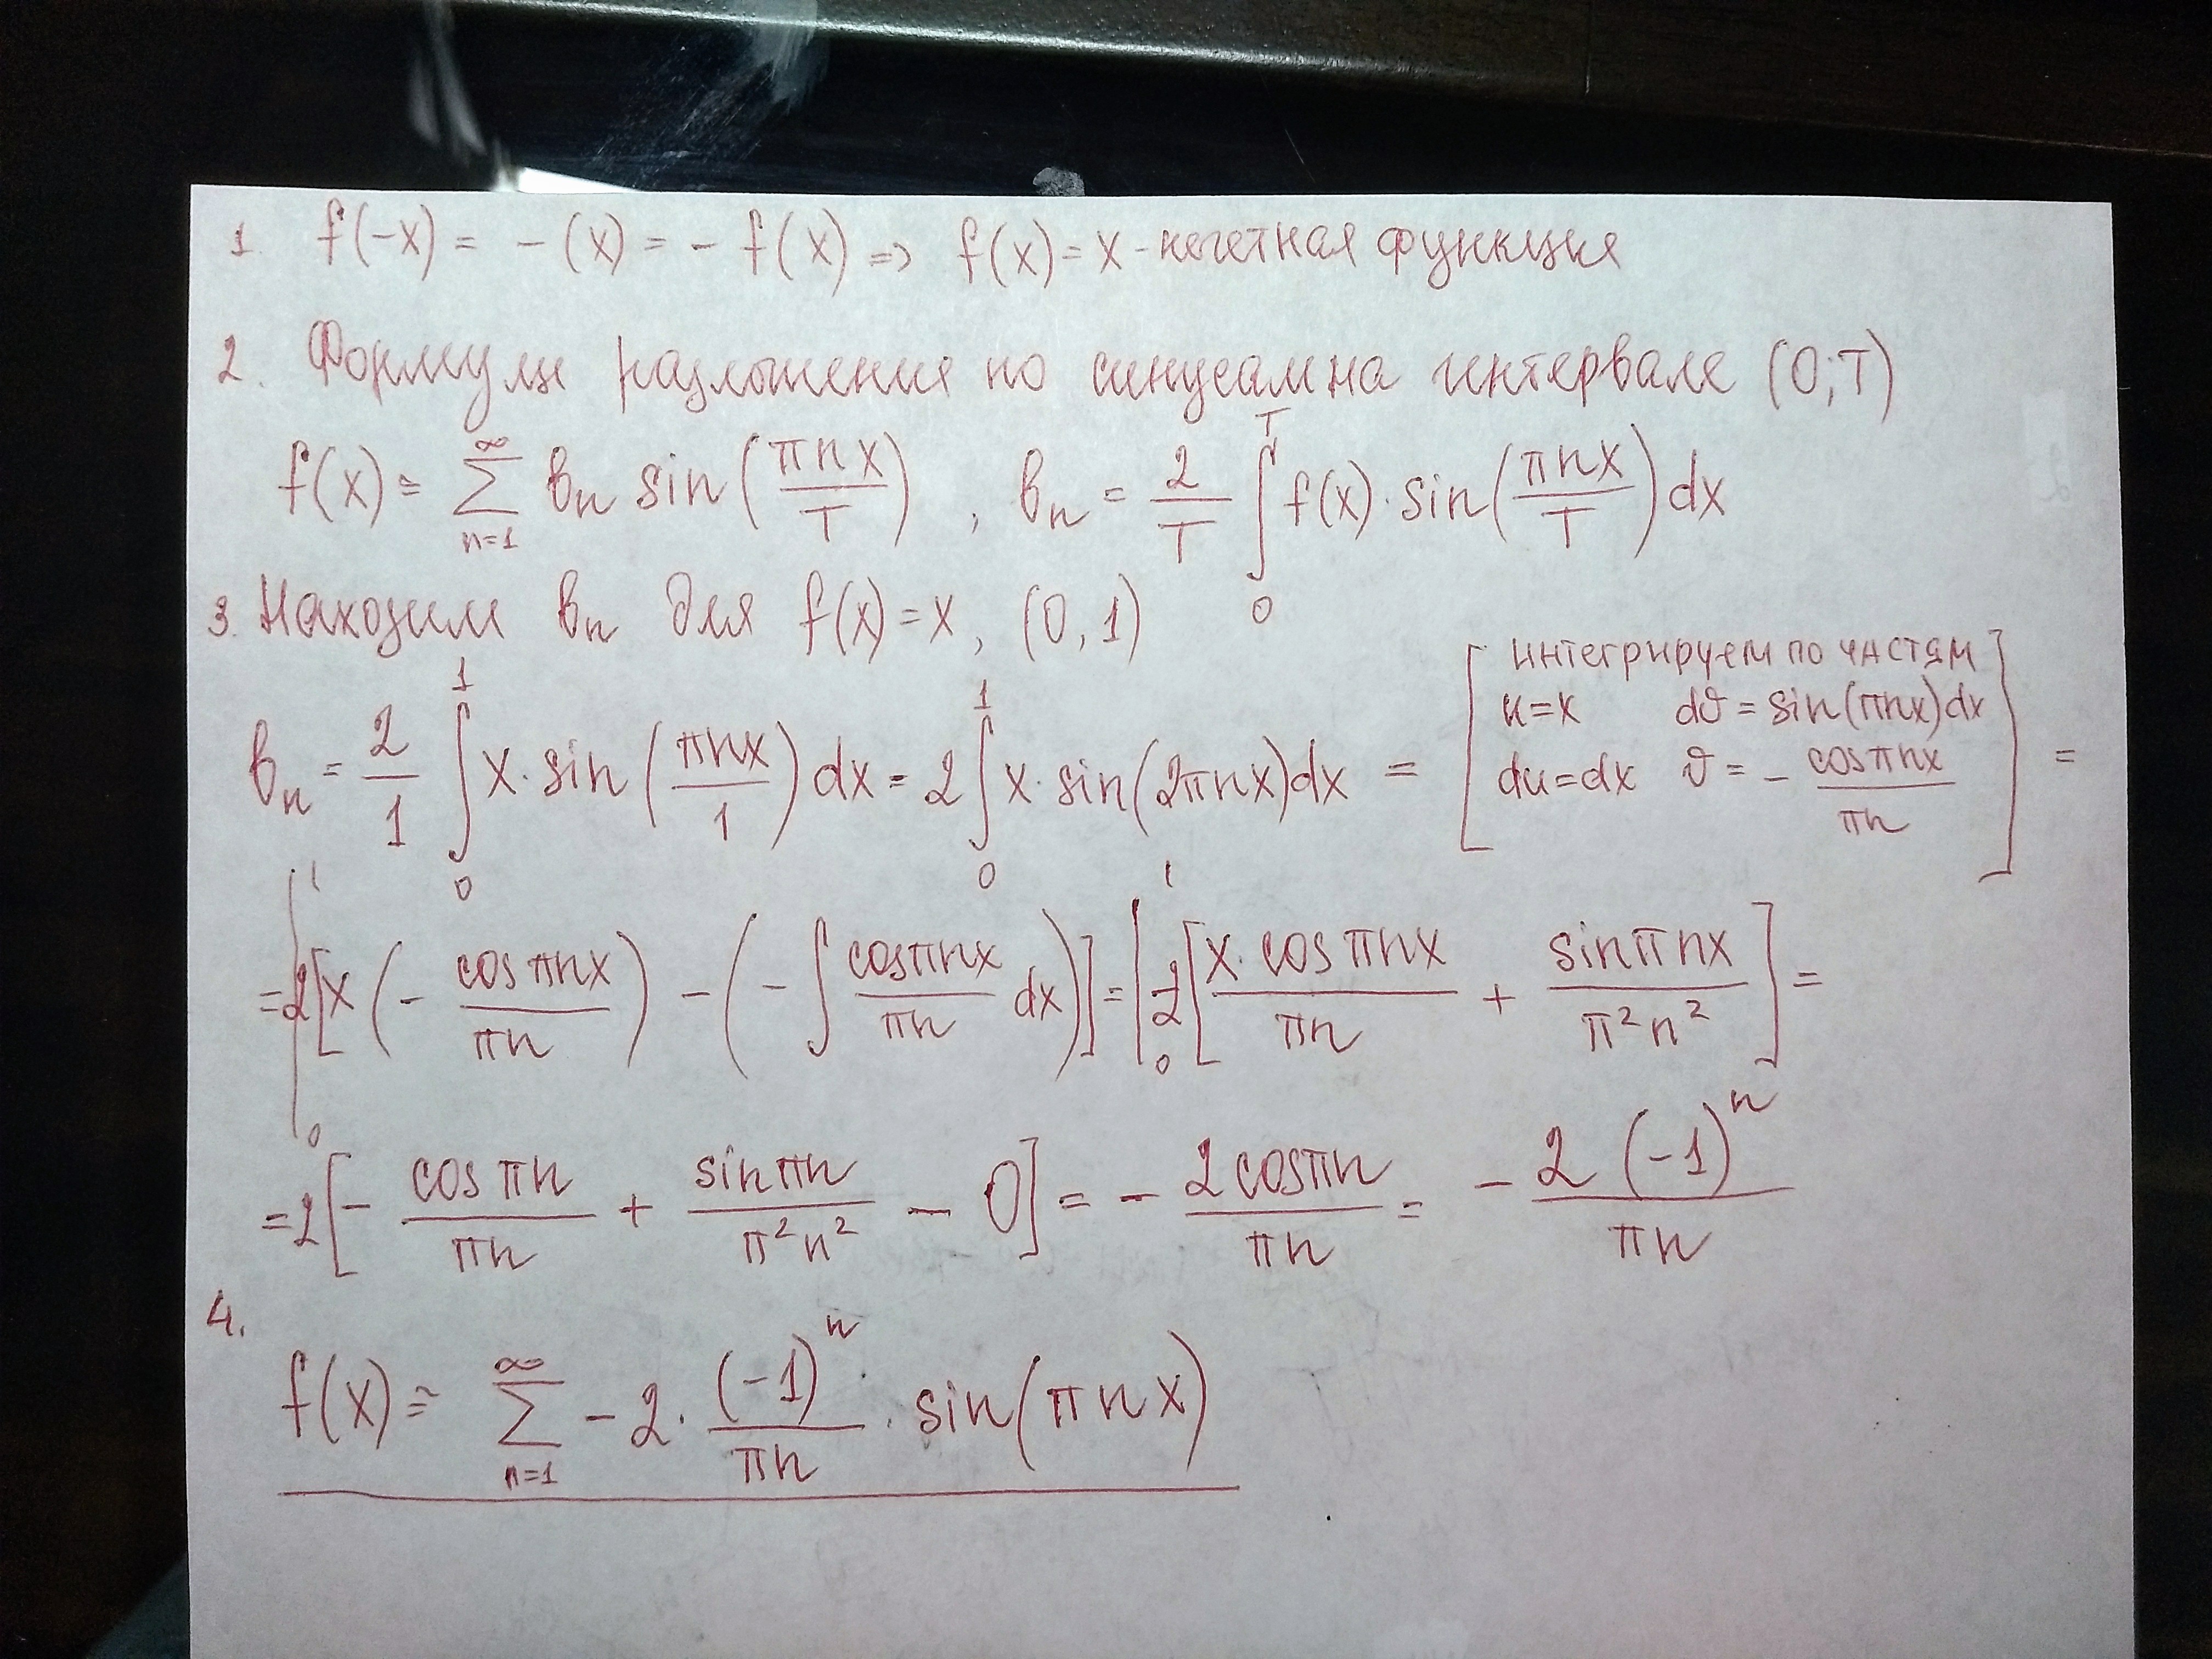 1. f(-x) = -(x) = - f(x) => f(x) = x - нечетная функция
2. Формулы разложения по синусам на интервале (0;T)
f(x) = ∑_{n=1}^{∞} bₙ sin(πnx/T), bₙ = 2/T ∫_0^T f(x)·sin(πnx/T)dx
3. Находим bₙ для f(x)=x, (0,1)
bₙ = 2/1 ∫_0^1 x·sin(πnx/1)dx = 2∫_0^1 x·sin(2πnx)dx = [интегрируем по частям u=x dϑ=sin(πnx)dx du=dx ϑ=-cosπnx/πn] =
=|_0^1 2[x(-cosπnx/πn) - (-∫cosπnx/πn dx)] = |_0^1 -2[x·cosπnx/πn + sinπnx/π²n²] =
=2[-cosπn/πn + sinπn/π²n² - 0] = -2cosπn/πn = -2(-1)ⁿ/πn
4.
f(x) = ∑_{n=1}^{∞} -2·(-1)ⁿ/πn · sin(πnx)